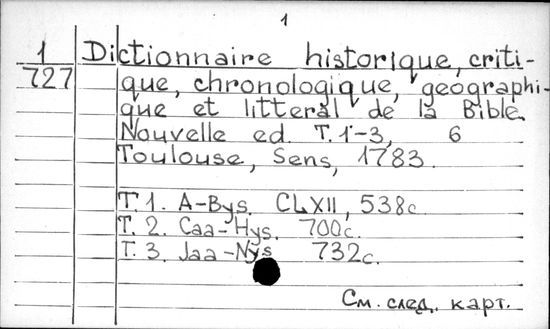 1
1
727
Dictionnaire historique, criti-
que, chronologique, geographi-
que et litteral de la Bible.
Nouvelle ed. T. 1-3, 6
Toulouse, Sens, 1783.
T. 1. A-Bys. CLXII, 538c.
T. 2. Caa-Hys. 700c.
T. 3. Jaa-Nys 732c.
См. след. карт.